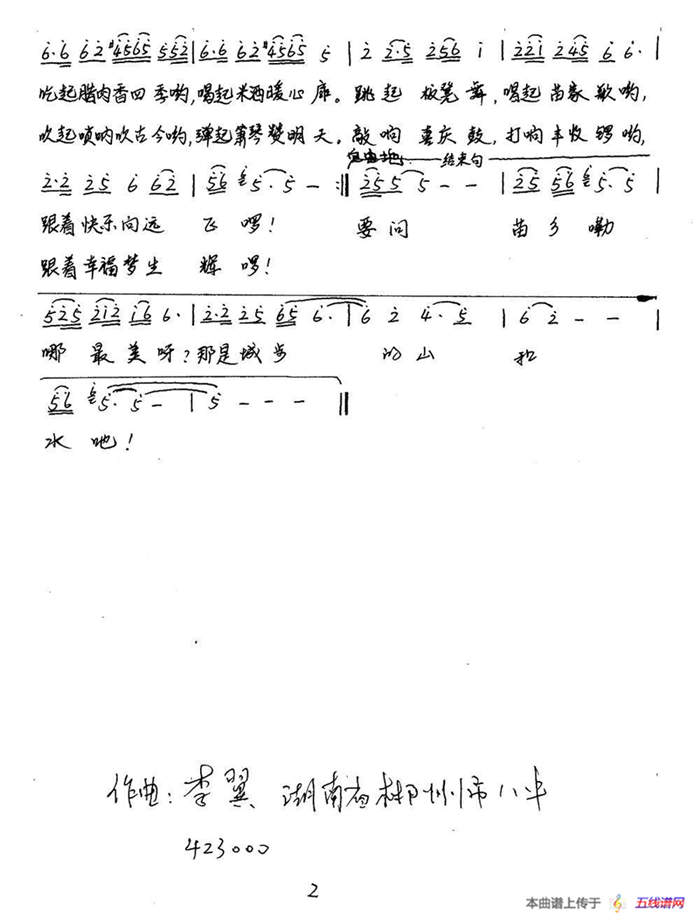 6·6 62 #4565 552 | 6·6 62 #4565 5 | 2 2·5 256 1 | 221 245 6 6· |
吃起腊肉香四季哟,唱起米酒暖心扉。跳起板凳舞,唱起苗家歌哟,
吹起唢呐吹古今哟,弹起萧琴赞明天。敲响喜庆鼓,打响丰收锣哟,
自由地 结束句
2·2 25 6 62 | 56 5· 5 — :‖ 255 5 — — | 25 56 5· 5 |
跟着快乐向远 飞啰! 要问 苗乡嘞
跟着幸福梦生 辉啰!
525 212 16 6· | 2·2 25 65 6· | 6 2 4· 5 | 6 2 — — |
哪最美呀?那是城步 的山 和
56 5· 5 — | 5 — — — ‖
水吔!
作曲:李翼 湖南省郴州市八中
423000
2
本曲谱上传于 五线谱网